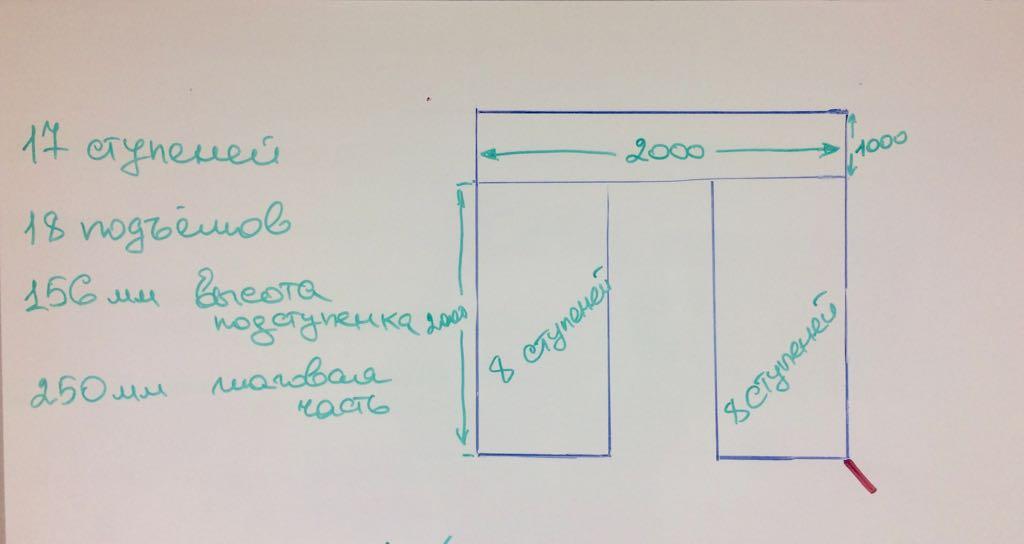 17 ступеней
18 подъёмов
156 мм высота
подступенка
250мм шаговая
часть
2000
1000
2000
8 ступеней
8 ступеней